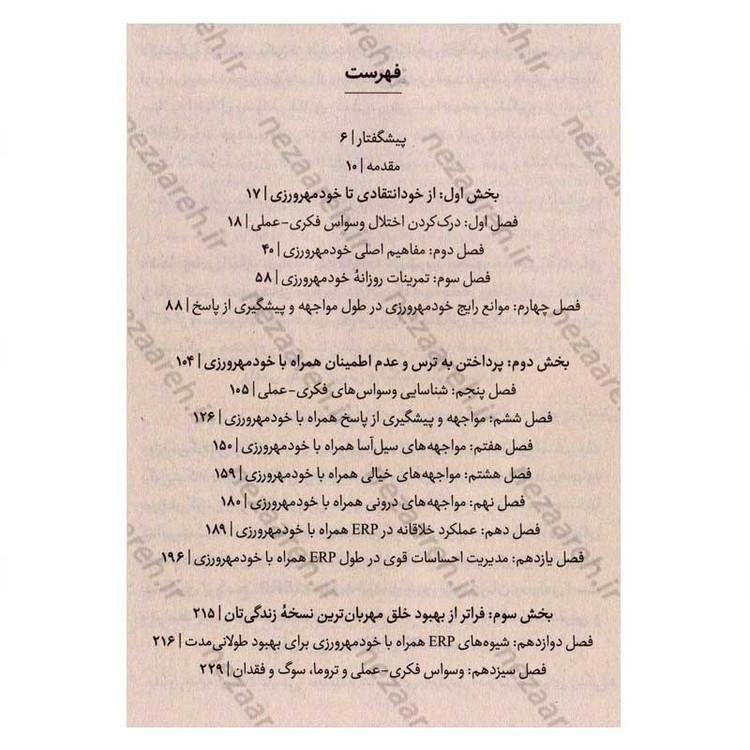 فهرست
پیشگفتار | ۶
مقدمه | ۱۰
بخش اول: از خودانتقادی تا خودمهرورزی | ۱۷
فصل اول: درک‌کردن اختلال وسواس فکری-عملی | ۱۸
فصل دوم: مفاهیم اصلی خودمهرورزی | ۴۰
فصل سوم: تمرینات روزانهٔ خودمهرورزی | ۵۸
فصل چهارم: موانع رایج خودمهرورزی در طول مواجهه و پیشگیری از پاسخ | ۸۸
بخش دوم: پرداختن به ترس و عدم اطمینان همراه با خودمهرورزی | ۱۰۴
فصل پنجم: شناسایی وسواس‌های فکری-عملی | ۱۰۵
فصل ششم: مواجهه و پیشگیری از پاسخ همراه با خودمهرورزی | ۱۲۶
فصل هفتم: مواجهه‌های سیل‌آسا همراه با خودمهرورزی | ۱۵۰
فصل هشتم: مواجهه‌های خیالی همراه با خودمهرورزی | ۱۵۹
فصل نهم: مواجهه‌های درونی همراه با خودمهرورزی | ۱۸۰
فصل دهم: عملکرد خلاقانه در ERP همراه با خودمهرورزی | ۱۸۹
فصل یازدهم: مدیریت احساسات قوی در طول ERP همراه با خودمهرورزی | ۱۹۶
بخش سوم: فراتر از بهبود خلق مهربان‌ترین نسخهٔ زندگی‌تان | ۲۱۵
فصل دوازدهم: شیوه‌های ERP همراه با خودمهرورزی برای بهبود طولانی‌مدت | ۲۱۶
فصل سیزدهم: وسواس فکری-عملی و تروما، سوگ و فقدان | ۲۲۹
nezaareh.ir